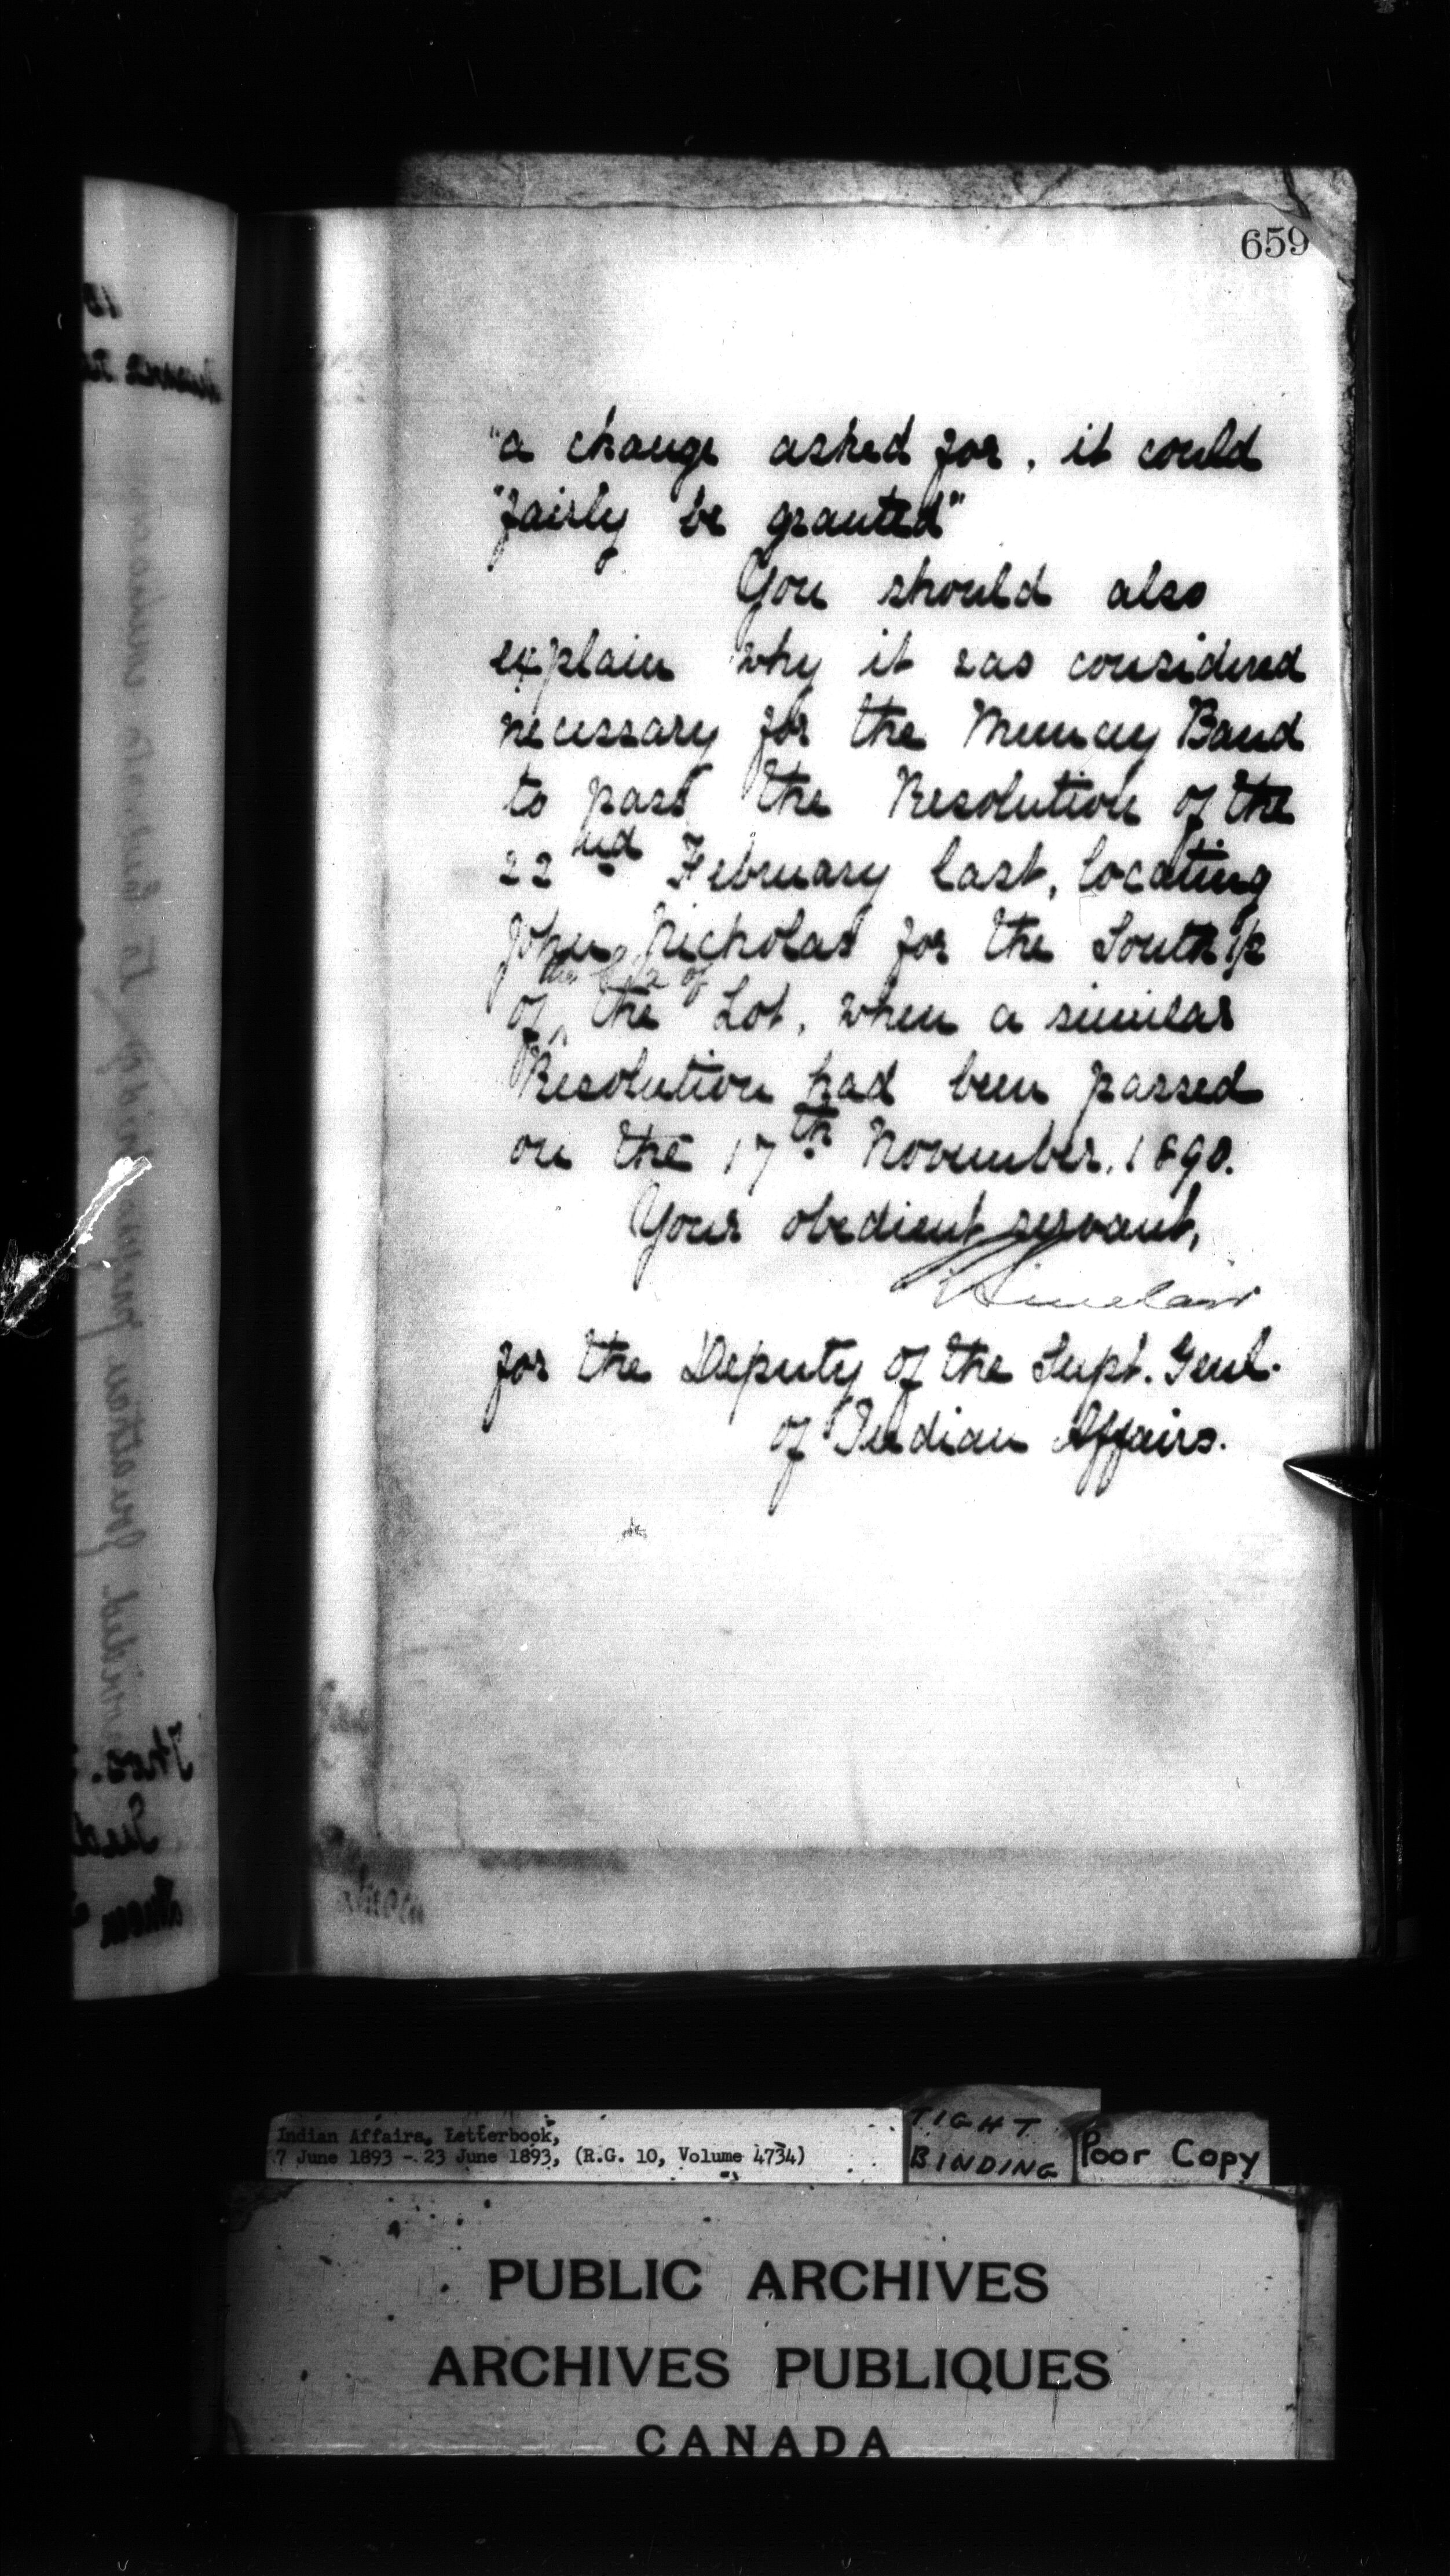 659
"a change asked for, it could
"fairly be granted"
You should also
explain why it was considered
necessary for the Muncey Band
to pass the Resolution of the
22nd February last, locating
John Nicholas for the South 1/2
the 1/2 of
of the Lot, when a similar
Resolution had been passed
on the 17th November, 1890.
Your obedient servant,
Sinclair
for the Deputy of the Supt. Genl.
of Indian Affairs.
Indian Affairs, Letterbook,
7 June 1893 - 23 June 1893, (R.G. 10, Volume 4734)
TIGHT
BINDING
Poor Copy
PUBLIC ARCHIVES
ARCHIVES PUBLIQUES
CANADA